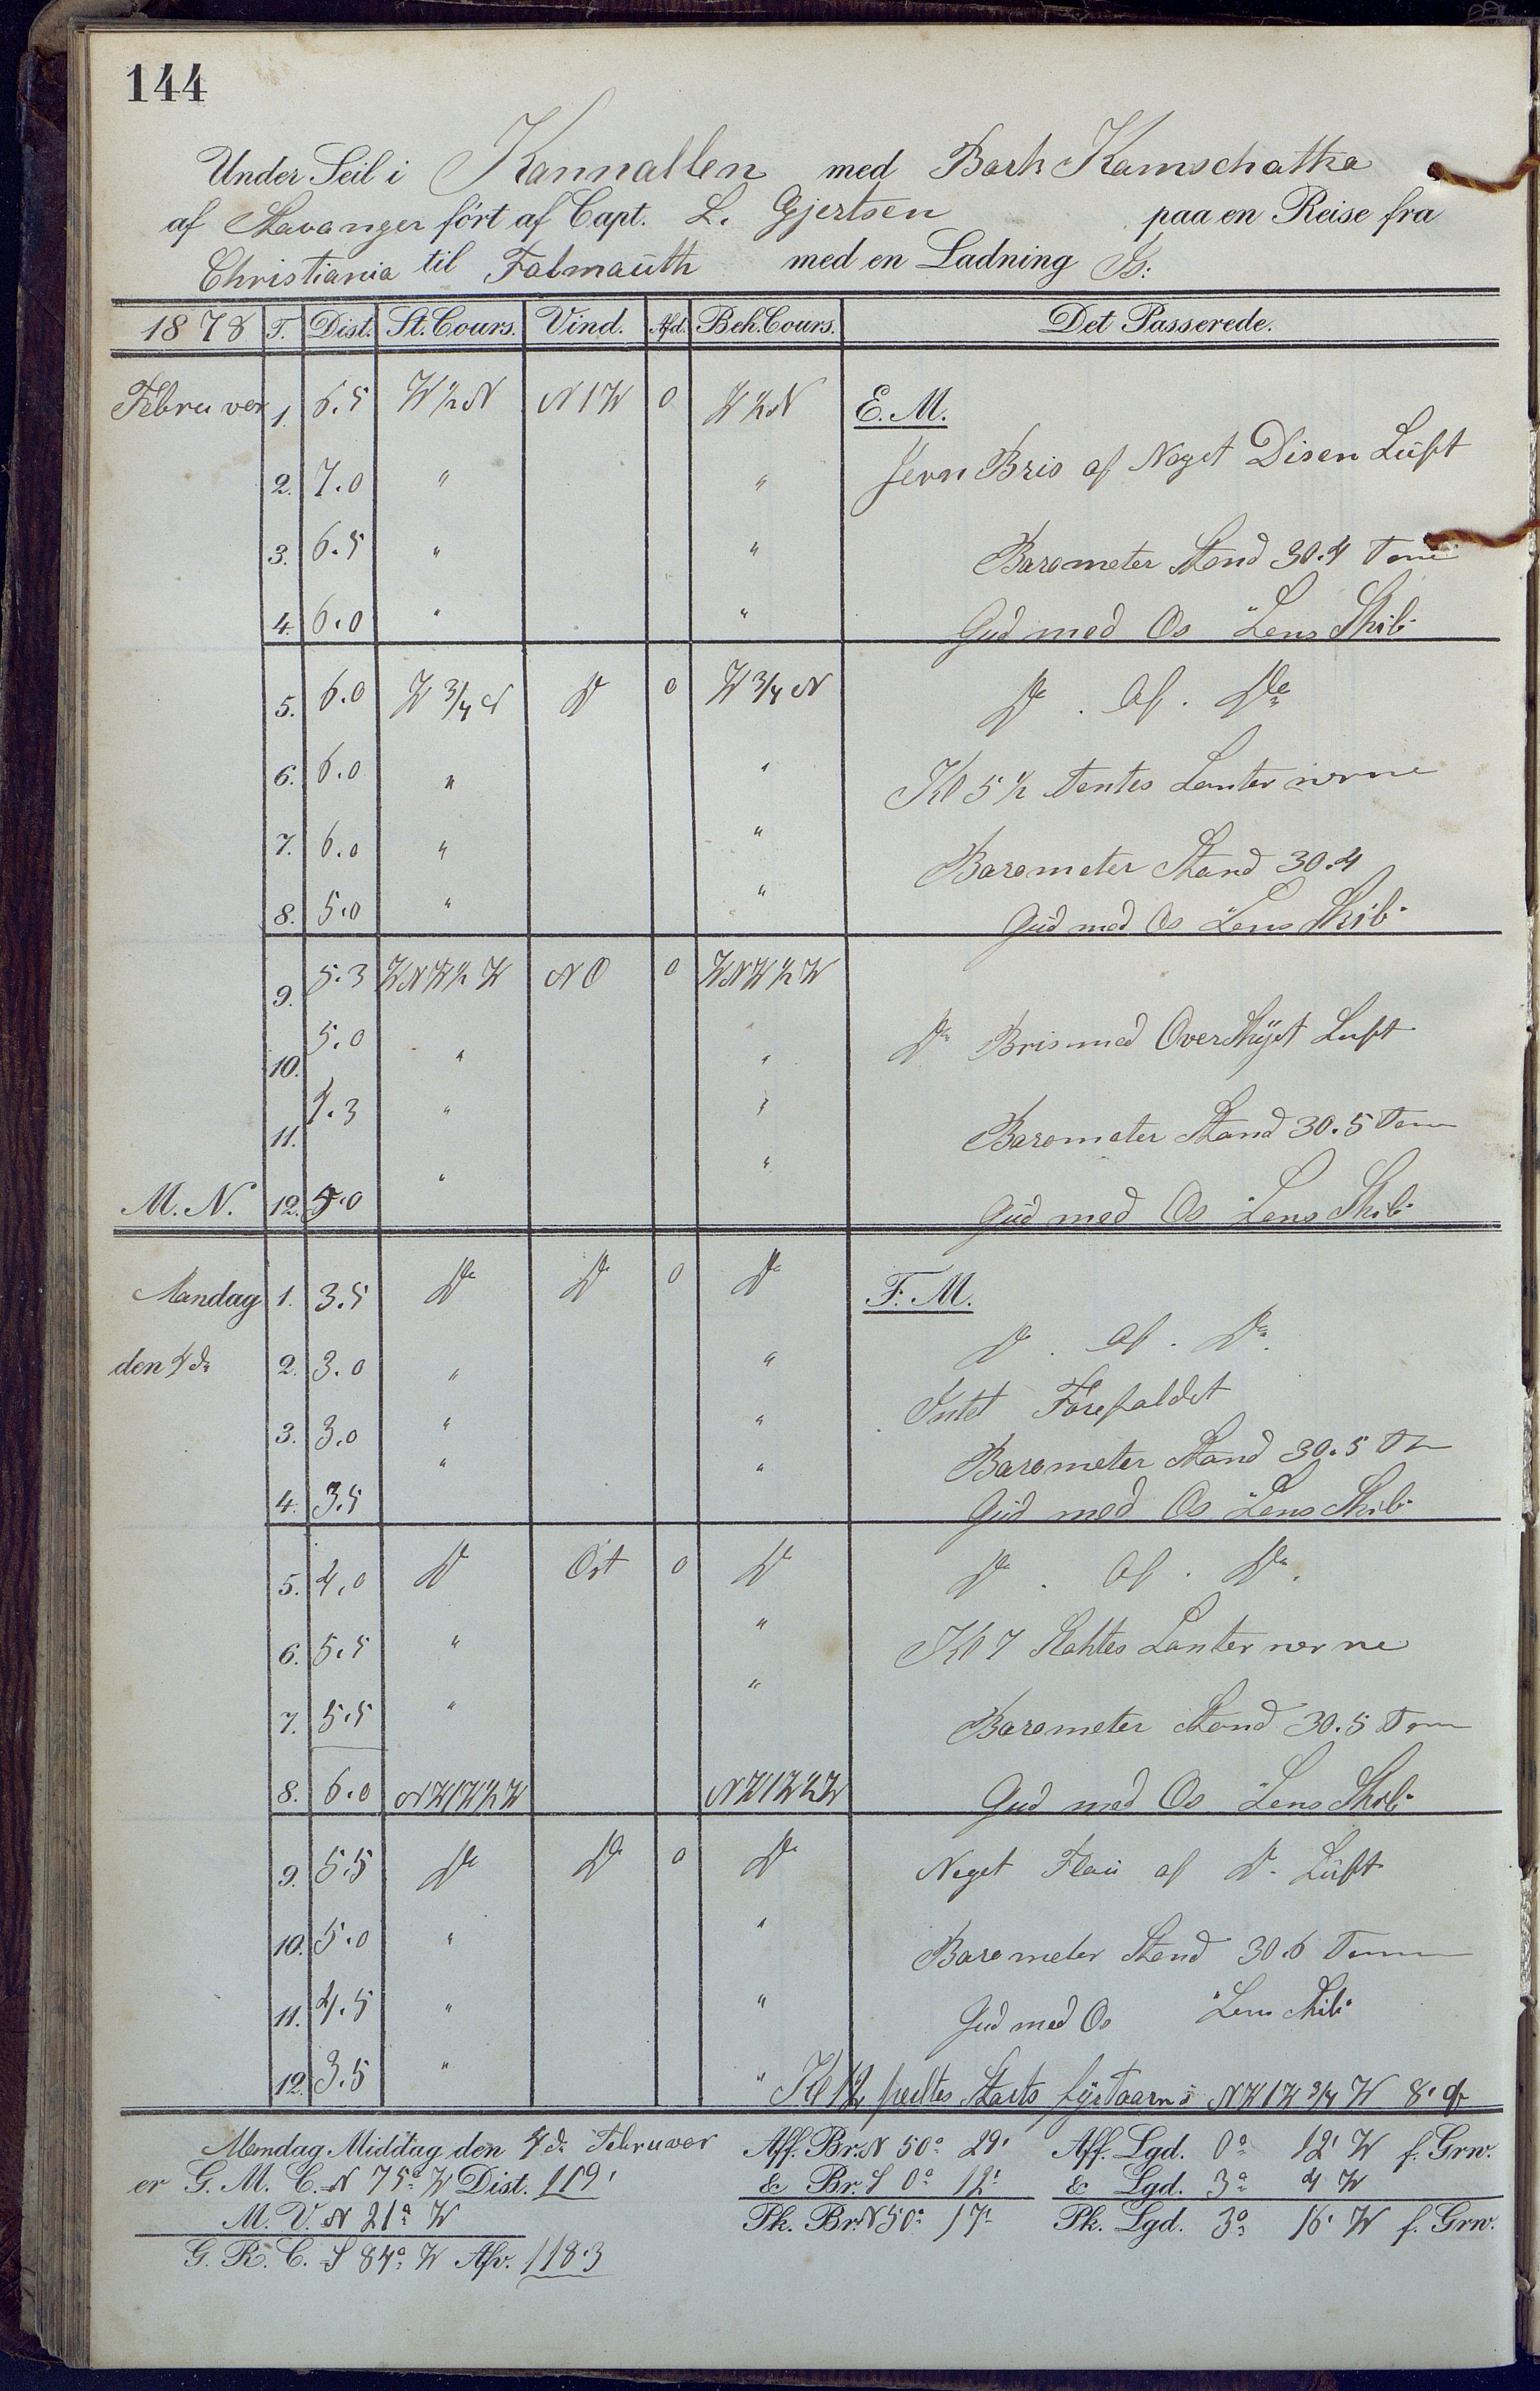 144
Under Seil i Kannallen med Bark Kamschatka
af Stavanger ført af Capt. L. Gjertsen paa en Reise fra
Christiania til Falmauth med en Ladning Is:
1878 T. Dist. St. Cours. Vind. Afd. Beh. Cours. Det Passerede.
Februver 1. 6.5 W½N N1W 0 W½N E. M.
2. 7.0 " " Jevn Bris af Noget Disen Luft
3. 6.5 " " Barometer Stand 30.4 Tom
4. 6.0 " " Gud med Os Lens Skib
5. 6.0 W¾N Do 0 W¾N Do . Af . Do
6. 6.0 " " Kl 5½ tentes Lanternerne
7. 6.0 " " Barometer Stand 30.4
8. 5.0 " " Gud med Os Lens Skib
9. 5.3 WNW½W NO 0 WNW½W
10. 5.0 " " Do Bris med OverSkyet Luft
11. 4.3 " " Barometer Stand 30.5 Tom
M. N. 12. 5.0 " " Gud med Os Lens Skib
Mandag 1. 3.5 Do Do 0 Do F. M.
den 4de 2. 3.0 " " Do . Af . Do.
3. 3.0 " " Intet Forefaldet
Barometer Stand 30.5 Tom
4. 3.5 " " Gud med Os Lens Skib
5. 4.0 Do Ost 0 Do Do . Af . Do.
6. 5.5 " " Kl 7 Slktes Lanternerne
7. 5.5 " " Barometer Stand 30.5 Tom
8. 6.0 NW1W½W NW1W½W Gud med Os Lens Skib
9. 5.5 Do Do 0 Do Noget Flau af Do Luft
10. 5.0 " " Barometer Stand 30.6 Tomm
11. 4.5 " " Gud med Os Lens Skib
12. 3.5 " " Kl 12 peiltes Starts fyrTaarn i NW1W¾W 8' qf
Mandag Middag den 4de Februver Aff. Br. N 50° 29' Aff. Lgd. 0° 12' W f. Grw.
er G. M. C. N 75° W Dist. 119' & Br. S 0° 12' & Lgd. 3° 4 W
M. V. N 21° W Pk. Br. N 50° 17' Pk. Lgd. 3° 16' W f. Grw.
G. R. C. S 84° W Afv. 118.3